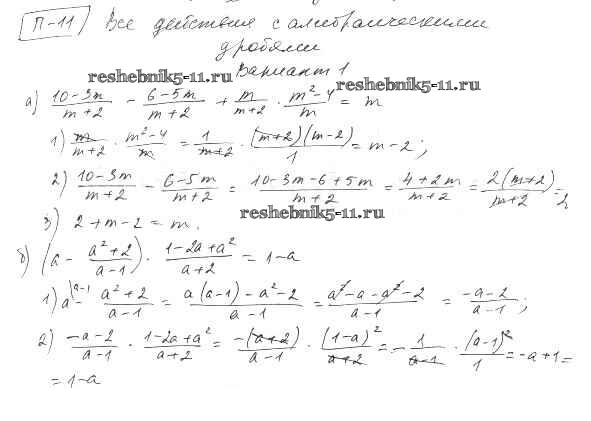 П-11 Все действия с алгебраическими
дробями
Вариант 1
reshebnik5-11.ru
reshebnik5-11.ru
а) (10-3m)/(m+2) - (6-5m)/(m+2) + m/(m+2) · (m²-4)/m = m
1) m/(m+2) · (m²-4)/m = 1/(m+2) · (m+2)(m-2)/1 = m-2;
2) (10-3m)/(m+2) - (6-5m)/(m+2) = (10-3m-6+5m)/(m+2) = (4+2m)/(m+2) = 2(m+2)/(m+2) = 2
3) 2+m-2=m.
reshebnik5-11.ru
б) (a - (a²+2)/(a-1)) · (1-2a+a²)/(a+2) = 1-a
1) a^(a-1) - (a²+2)/(a-1) = (a(a-1)-a²-2)/(a-1) = (a²-a-a²-2)/(a-1) = (-a-2)/(a-1);
2) (-a-2)/(a-1) · (1-2a+a²)/(a+2) = -(a+2)/(a-1) · (1-a)²/(a+2) = -1/(a-1) · (a-1)²/1 = -a+1 =
= 1-a